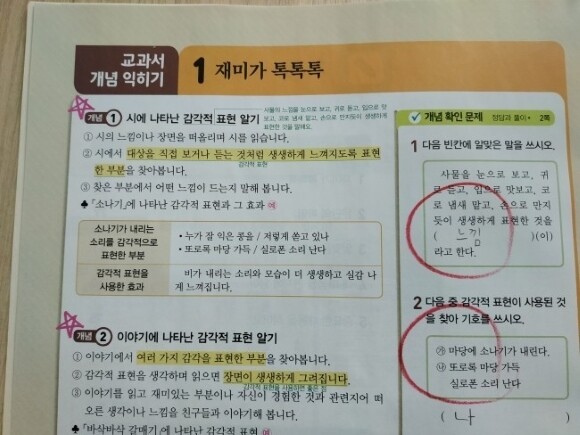 교과서
개념 익히기
1 재미가 톡톡톡
개념 1 시에 나타난 감각적 표현 알기
사물의 느낌을 눈으로 보고, 귀로 듣고, 입으로 맛
보고, 코로 냄새 맡고, 손으로 만지듯이 생생하게
표현한 것을 말해요.
① 시의 느낌이나 장면을 떠올리며 시를 읽습니다.
② 시에서 대상을 직접 보거나 듣는 것처럼 생생하게 느껴지도록 표현
한 부분을 찾아봅니다.
감각적 표현
③ 찾은 부분에서 어떤 느낌이 드는지 말해 봅니다.
♣ 「소나기」에 나타난 감각적 표현과 그 효과 예
소나기가 내리는
소리를 감각적으로
표현한 부분
• 누가 잘 익은 콩을 / 저렇게 쏟고 있나
• 또로록 마당 가득 / 실로폰 소리 난다
감각적 표현을
사용한 효과
비가 내리는 소리와 모습이 더 생생하고 실감 나
게 느껴집니다.
개념 2 이야기에 나타난 감각적 표현 알기
① 이야기에서 여러 가지 감각을 표현한 부분을 찾아봅니다.
② 감각적 표현을 생각하며 읽으면 장면이 생생하게 그려집니다.
감각적 표현을 사용하면 좋은 점
③ 이야기를 읽고 재미있는 부분이나 자신이 경험한 것과 관련지어 떠
오른 생각이나 느낌을 친구들과 이야기해 봅니다.
♣ 「바삭바삭 갈매기」에 나타난 감각적 표현 예
개념 확인 문제 정답과 풀이 • 2쪽
1 다음 빈칸에 알맞은 말을 쓰시오.
사물을 눈으로 보고, 귀
로 듣고, 입으로 맛보고, 코
로 냄새 맡고, 손으로 만지
듯이 생생하게 표현한 것을
( 느낌 )(이)
라고 한다.
2 다음 중 감각적 표현이 사용된 것
을 찾아 기호를 쓰시오.
㉮ 마당에 소나기가 내린다.
㉯ 또로록 마당 가득
실로폰 소리 난다
( 나